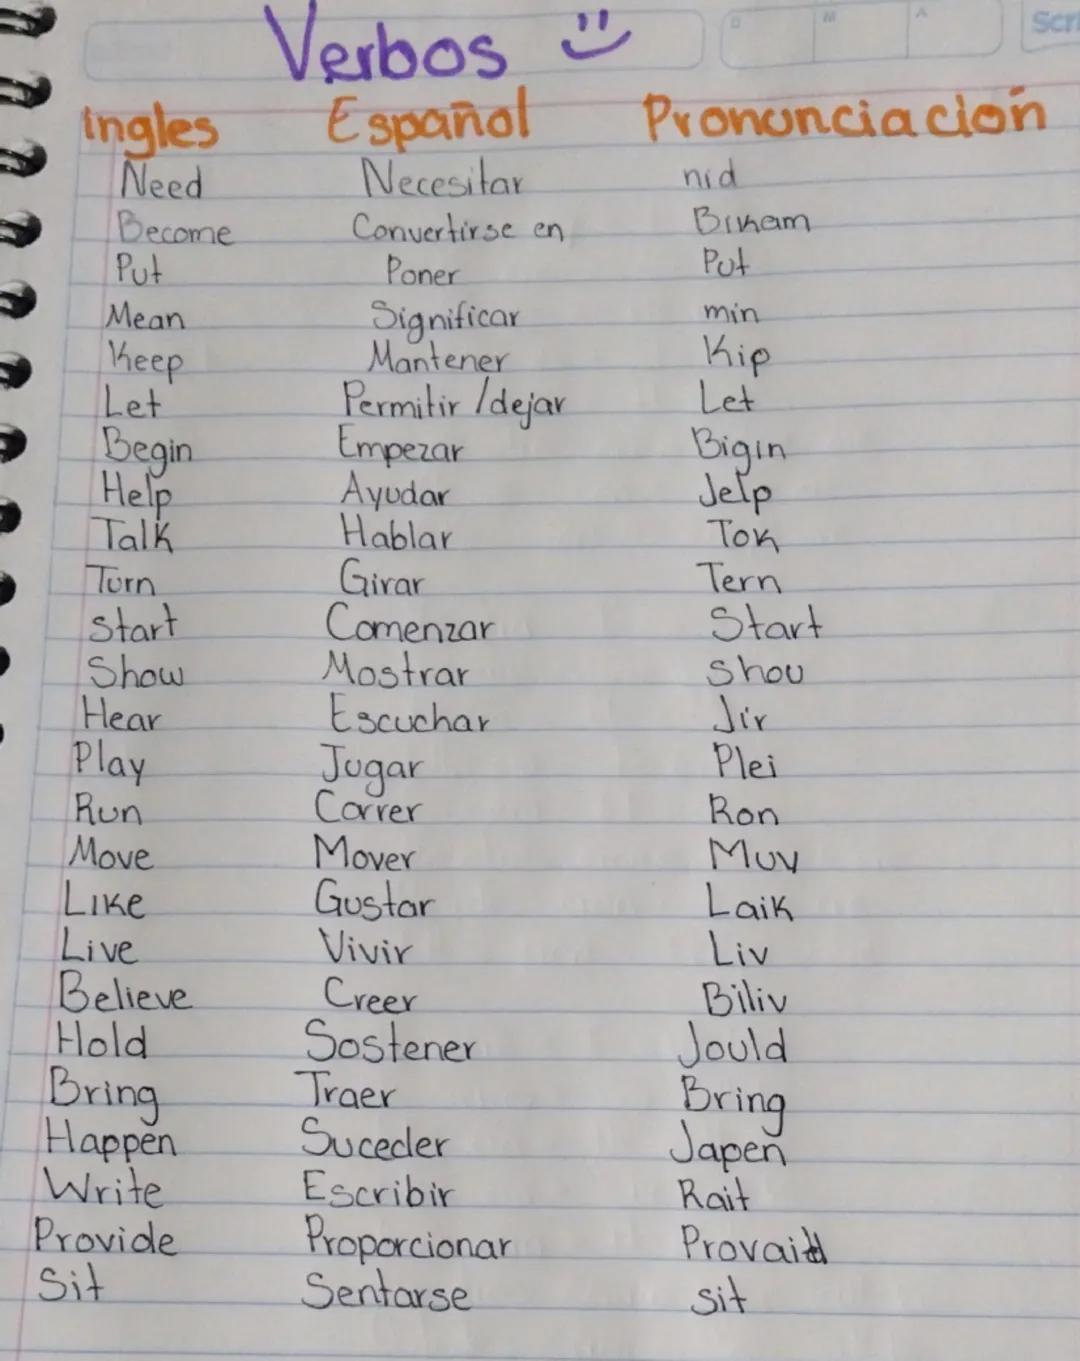 Verbos
Ingles Español Pronunciación
Need Necesitar nid
Become Convertirse en Bikam
Put Poner Put
Mean Significar min
Keep Mantener Kip
Let Permitir/dejar Let
Begin Empezar Bigin
Help Ayudar Jelp
Talk Hablar Tok
Turn Girar Tern
Start Comenzar Start
Show Mostrar Shou
Hear Escuchar Jir
Play Jugar Plei
Run Correr Ron
Move Mover Muv
Like Gustar Laik
Live Vivir Liv
Believe Creer Biliv
Hold Sostener Jould
Bring Traer Bring
Happen Suceder Japen
Write Escribir Rait
Provide Proporcionar Provaid
Sit Sentarse sit